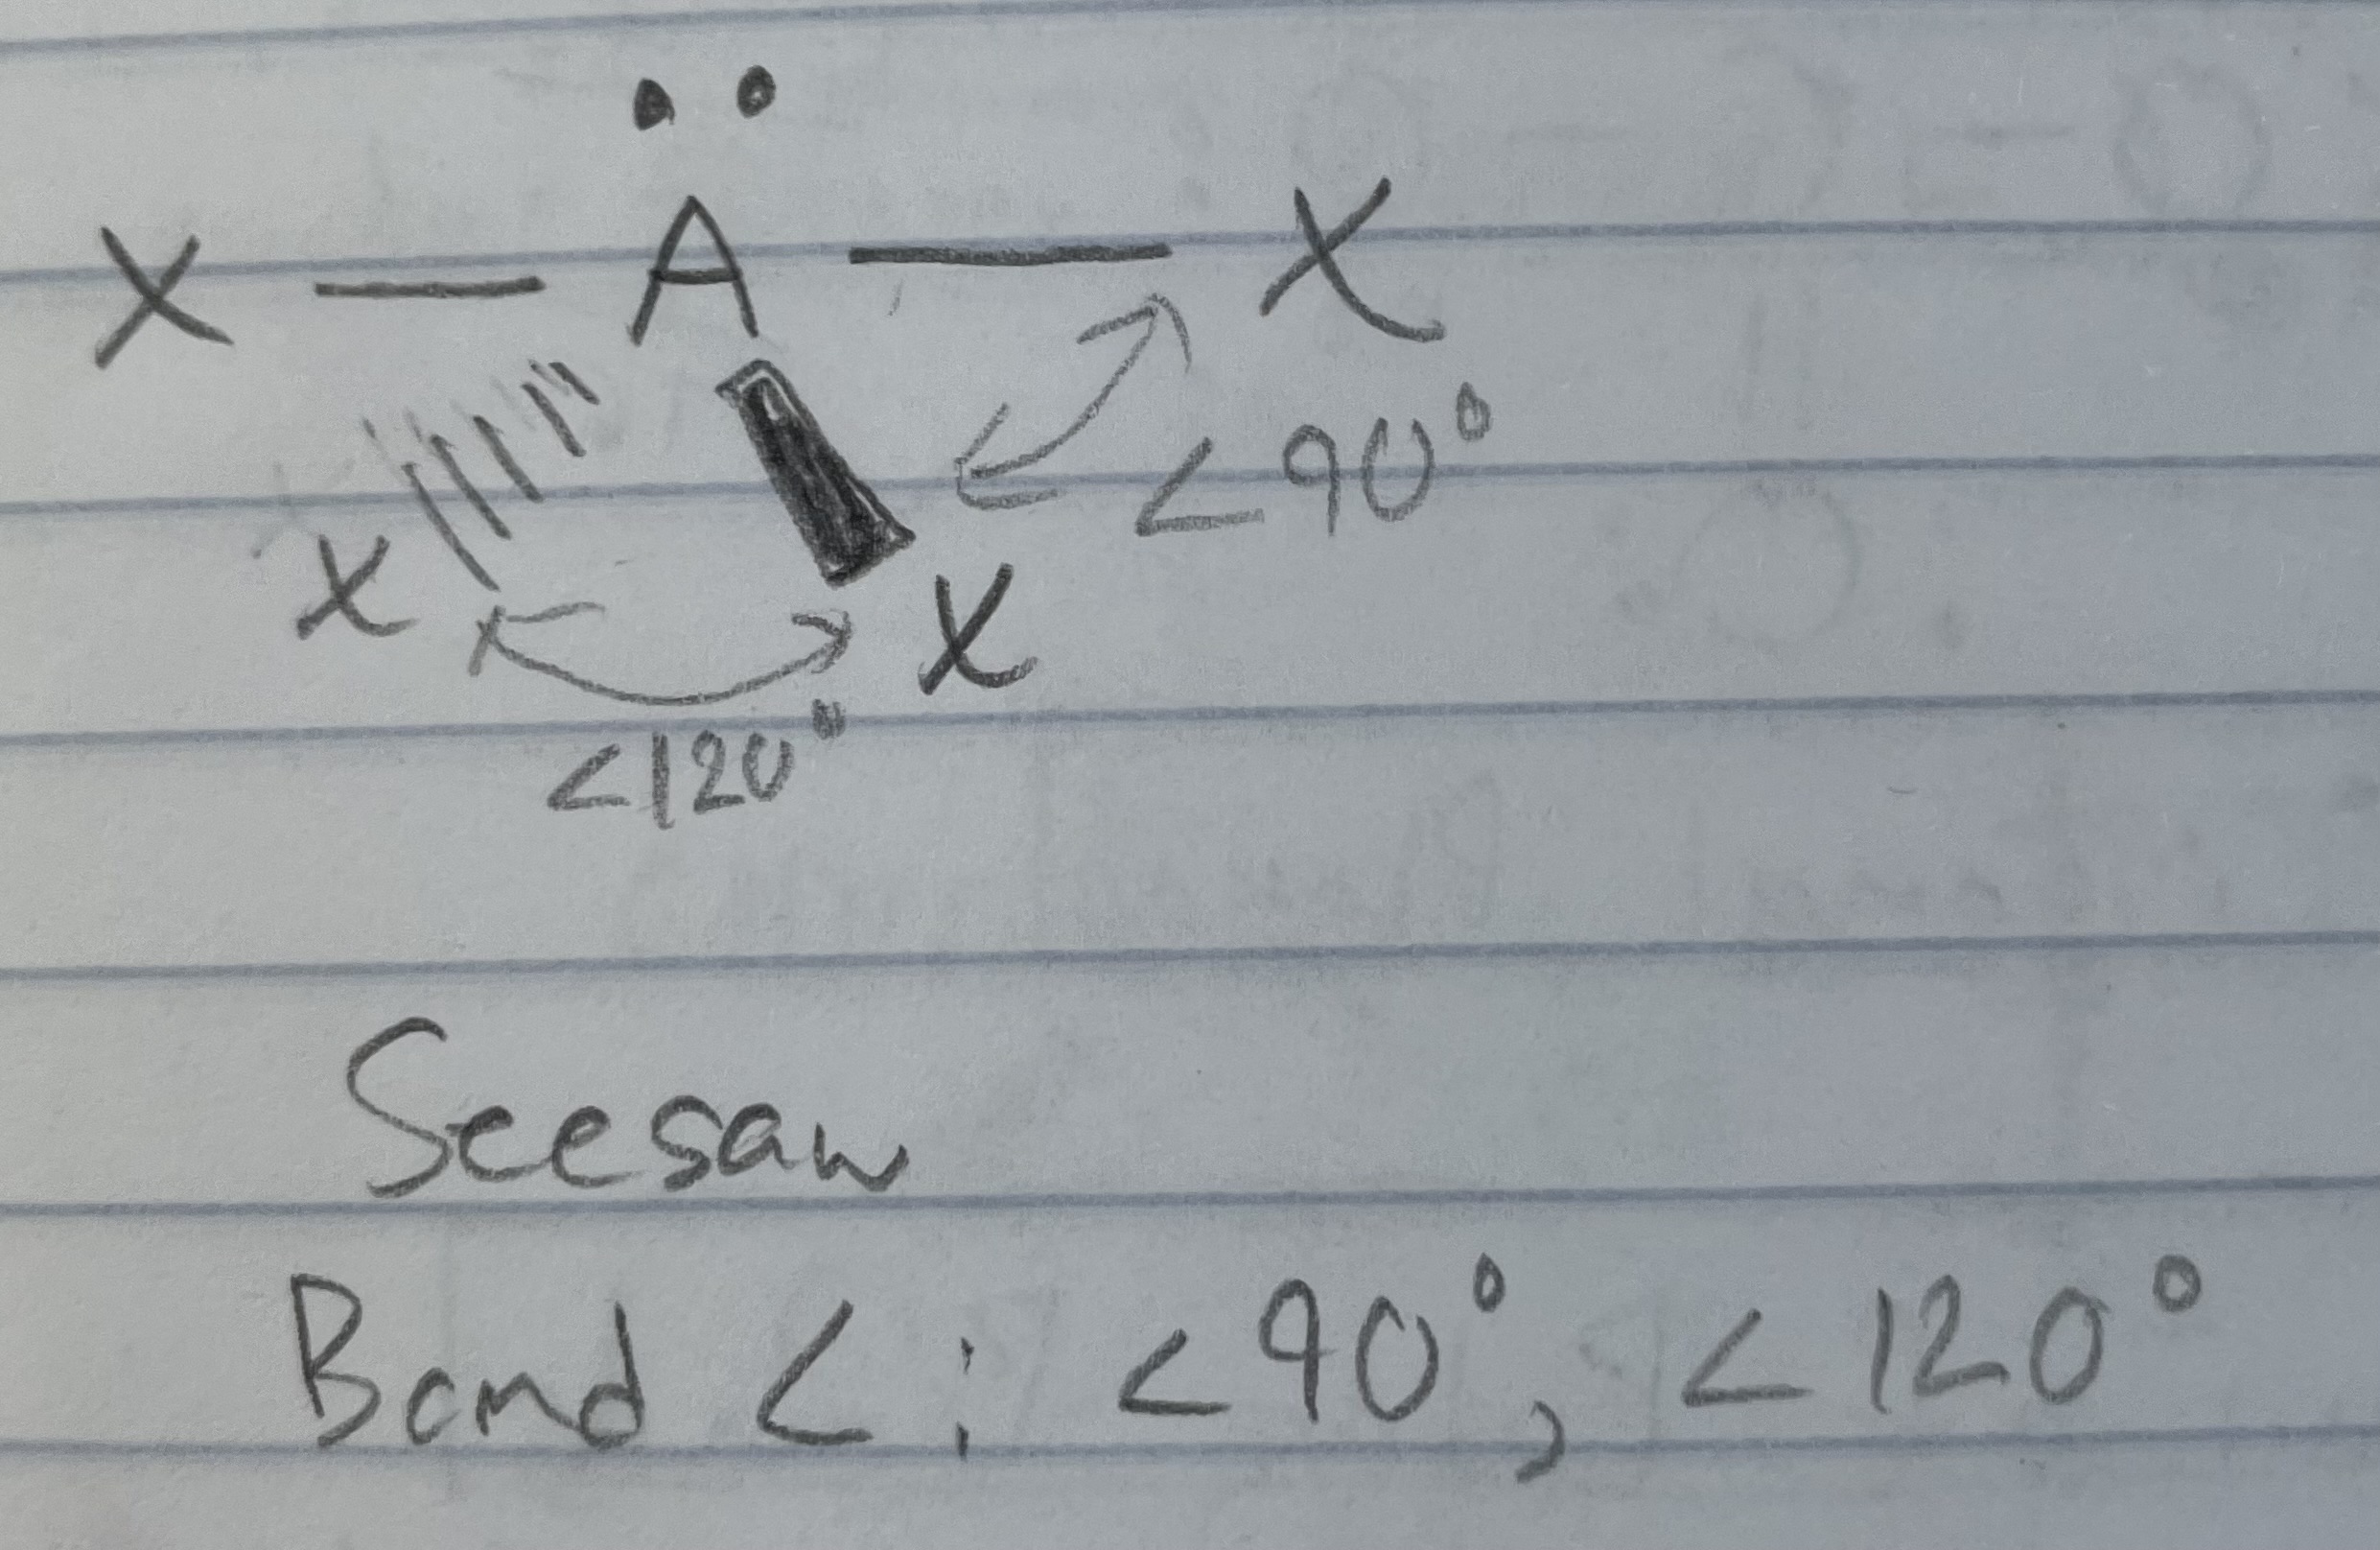 X — A — X
<90°
X X
<120°
Seesaw
Bond <: <90°, <120°